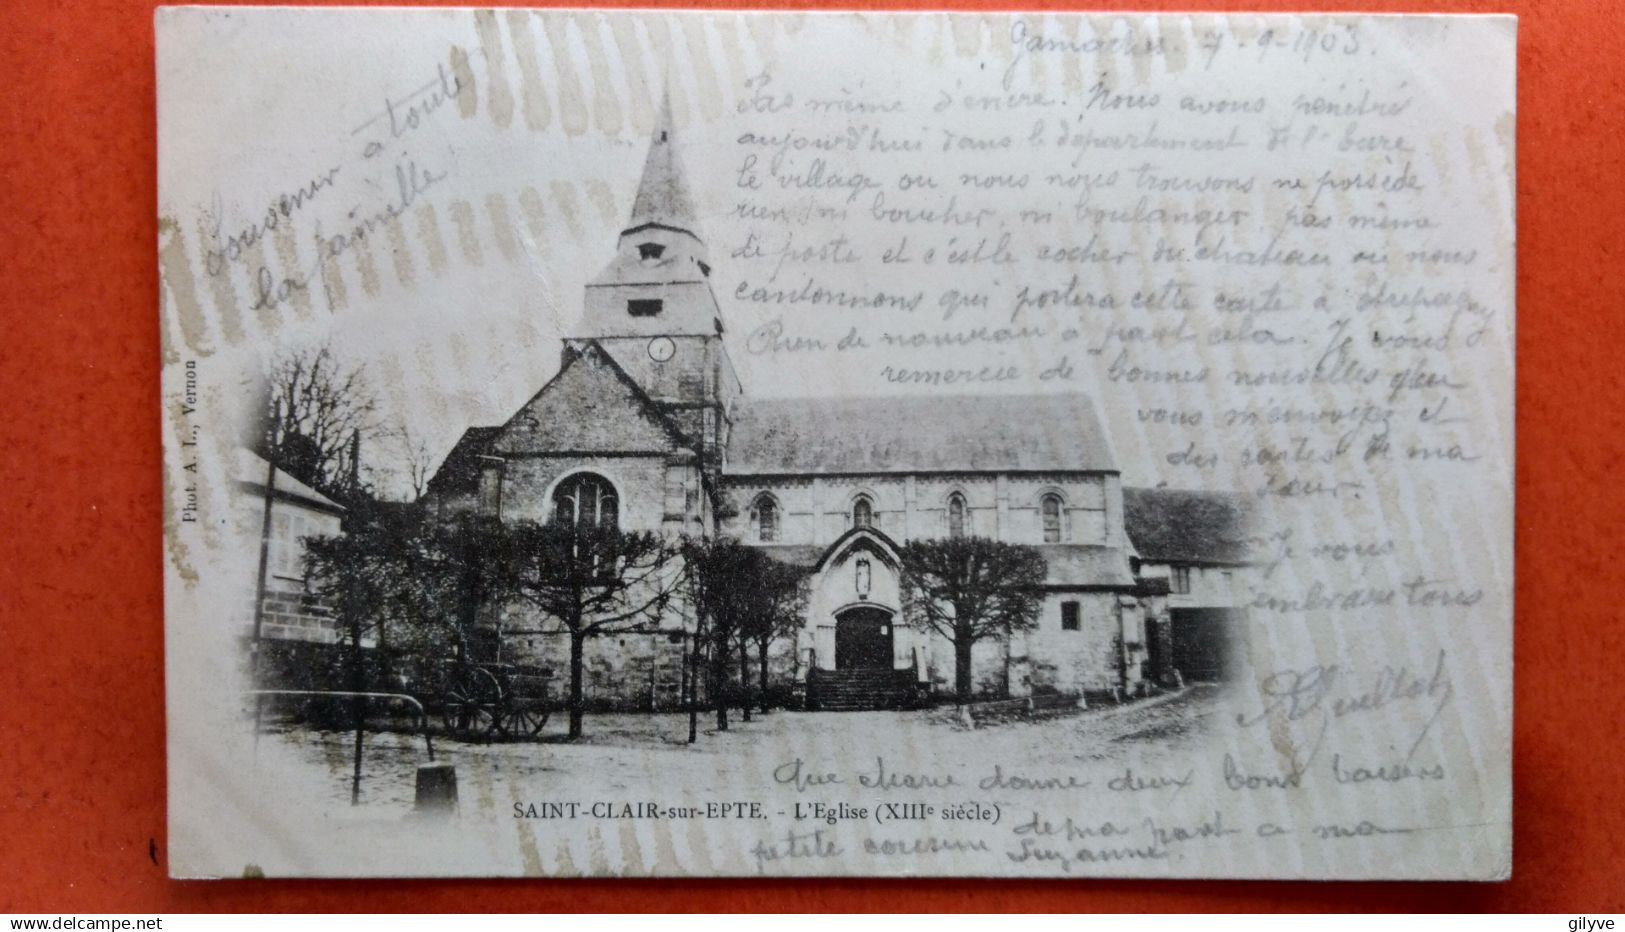 Gamaches. 7-9-1903.
Pas même d'encre. Nous avons pénétré
aujourd'hui dans le département de l'Eure
Le village ou nous nous trouvons ne possède
rien, ni boucher, ni boulanger, pas même
de poste et c'est le cocher du chateau ou nous
cantonnons qui portera cette carte à Etrepagny
Rien de nouveau a part cela. Je vous
remercie de bonnes nouvelles que
vous m'envoyez et
des cartes de ma
soeur.
Je vous
embrasse tous
Souvenir à toute
la famille
Que Marie donne deux bons baisers
de ma part a ma
petite cousine Suzanne.
Phot. A. L., Vernon
SAINT-CLAIR-sur-EPTE. - L'Eglise (XIIIe siècle)
gilyve